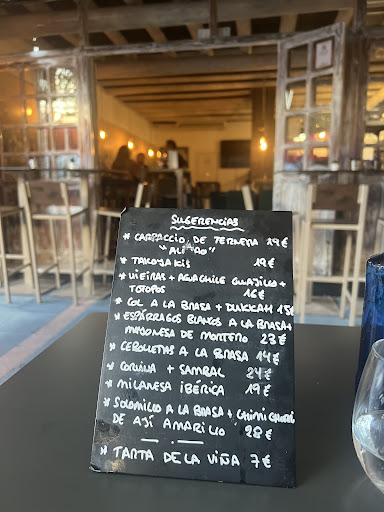 SUGERENCIAS
* CARPACCIO DE TERNERA 19€
"ALIÑAO"
* TAKOYAKIS 19€
* VIEIRAS + AGUACHILE GUAJILLO +
TOTOPOS 16€
* COL A LA BRASA + DUKKAH 15€
* ESPÁRRAGOS BLANCOS A LA BRASA +
MAYONESA DE MORTERO 23€
* CEBOLLETAS A LA BRASA 14€
* CORVINA + SAMBAL 24€
* MILANESA IBÉRICA 19€
* SOLOMILLO A LA BRASA + CHIMICHURRI
DE AJÍ AMARILLO 28€
* TARTA DE LA VIÑA 7€